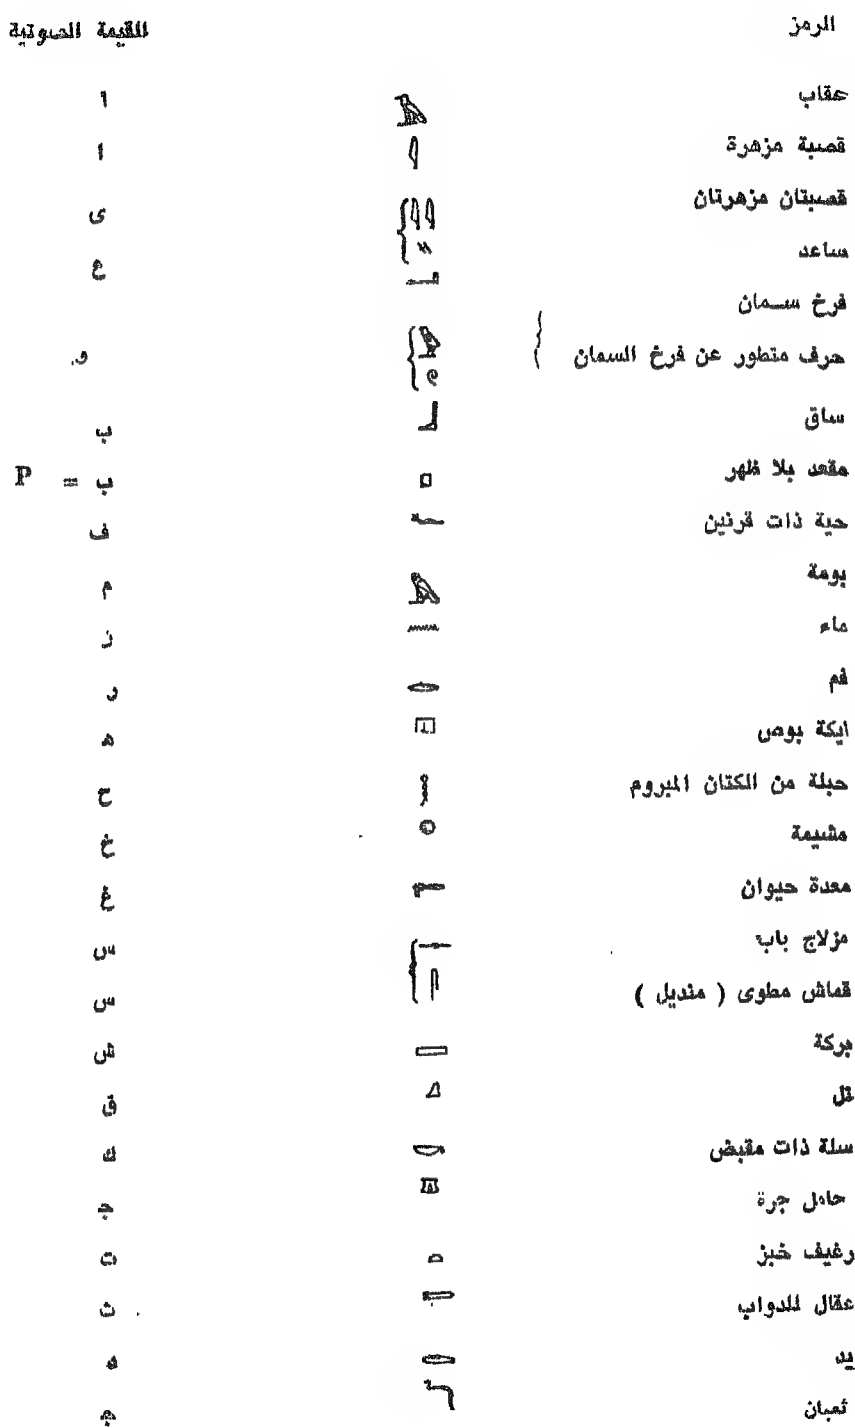 الرمز القيمة الصوتية
عقاب أ
قصبة مزهرة ا
قصبتان مزهرتان ى
ساعد ع
فرخ سمان
حرف متطور عن فرخ السمان و
ساق ب
مقعد بلا ظهر ب = P
حية ذات قرنين ف
بومة م
ماء ن
فم ر
ايكة بوص ه
حبلة من الكتان المبروم ح
مشيمة خ
معدة حيوان غ
مزلاج باب س
قماش مطوى ( منديل ) س
بركة ش
تل ق
سلة ذات مقبض ك
حامل جرة ج
رغيف خبز ت
عقال للدواب ث
يد
ثعبان ج